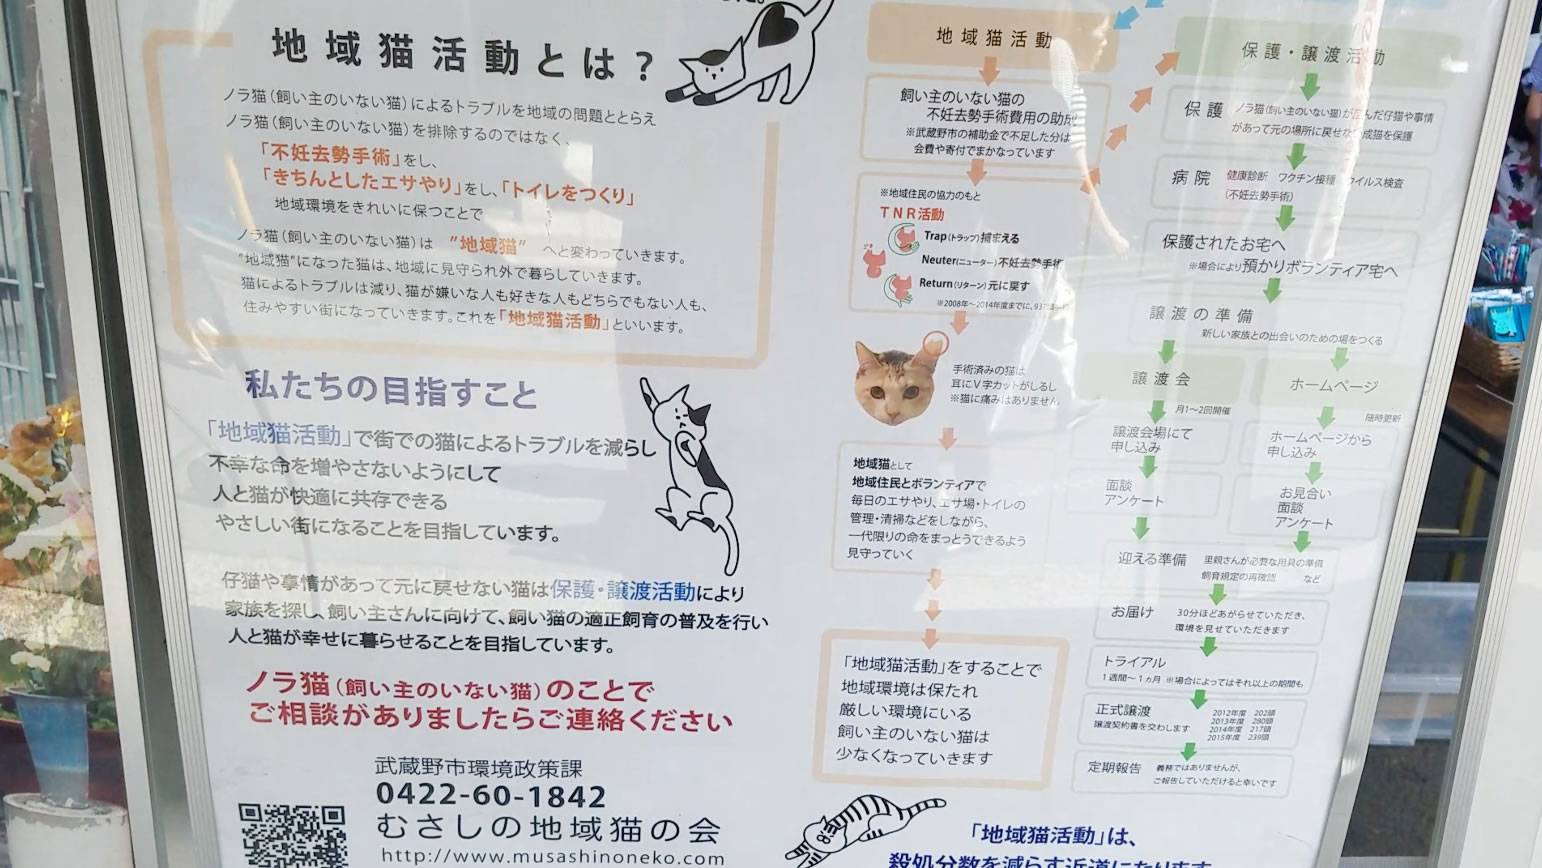 地域猫活動とは？
ノラ猫（飼い主のいない猫）によるトラブルを地域の問題ととらえ
ノラ猫（飼い主のいない猫）を排除するのではなく、
「不妊去勢手術」をし、
「きちんとしたエサやり」をし、「トイレをつくり」
地域環境をきれいに保つことで
ノラ猫（飼い主のいない猫）は “地域猫” へと変わっていきます。
“地域猫”になった猫は、地域に見守られ外で暮らしていきます。
猫によるトラブルは減り、猫が嫌いな人も好きな人もどちらでもない人も、
住みやすい街になっていきます。これを「地域猫活動」といいます。
私たちの目指すこと
「地域猫活動」で街での猫によるトラブルを減らし
不幸な命を増やさないようにして
人と猫が快適に共存できる
やさしい街になることを目指しています。
仔猫や事情があって元に戻せない猫は保護・譲渡活動により
家族を探し、飼い主さんに向けて、飼い猫の適正飼育の普及を行い
人と猫が幸せに暮らせることを目指しています。
ノラ猫（飼い主のいない猫）のことで
ご相談がありましたらご連絡ください
武蔵野市環境政策課
0422-60-1842
むさしの地域猫の会
http://www.musashinoneko.com
地域猫活動
飼い主のいない猫の
不妊去勢手術費用の助成
※武蔵野市の補助金で不足した分は
会費や寄付でまかなっています
※地域住民の協力のもと
TNR活動
Trap（トラップ）捕まえる
Neuter（ニューター）不妊去勢手術
Return（リターン）元に戻す
※2008年～2014年度までに、937
手術済みの猫は
耳にV字カットがしるし
※猫に痛みはありません
地域猫として
地域住民とボランティアで
毎日のエサやり、エサ場・トイレの
管理・清掃などをしながら、
一代限りの命をまっとうできるよう
見守っていく
「地域猫活動」をすることで
地域環境は保たれ
厳しい環境にいる
飼い主のいない猫は
少なくなっていきます
「地域猫活動」は、
殺処分数を減らす近道になります
保護・譲渡活動
保護 ノラ猫（飼い主のいない猫）が産んだ仔猫や事情
があって元の場所に戻せない成猫を保護
病院 健康診断 ワクチン接種 ウイルス検査
（不妊去勢手術）
保護されたお宅へ
※場合により預かりボランティア宅へ
譲渡の準備
新しい家族との出会いのための場をつくる
譲渡会
月1～2回開催
譲渡会場にて
申し込み
面談
アンケート
ホームページ
随時更新
ホームページから
申し込み
お見合い
面談
アンケート
迎える準備 里親さんが必要な用具の準備
飼育規定の再確認 など
お届け 30分ほどあがらせていただき、
環境を見せていただきます
トライアル
1週間～1ヵ月 ※場合によってはそれ以上の期間も
正式譲渡
譲渡契約書を交わします
2012年度 202頭
2013年度 280頭
2014年度 217頭
2015年度 239頭
定期報告 義務ではありませんが、
ご報告していただけると幸いです